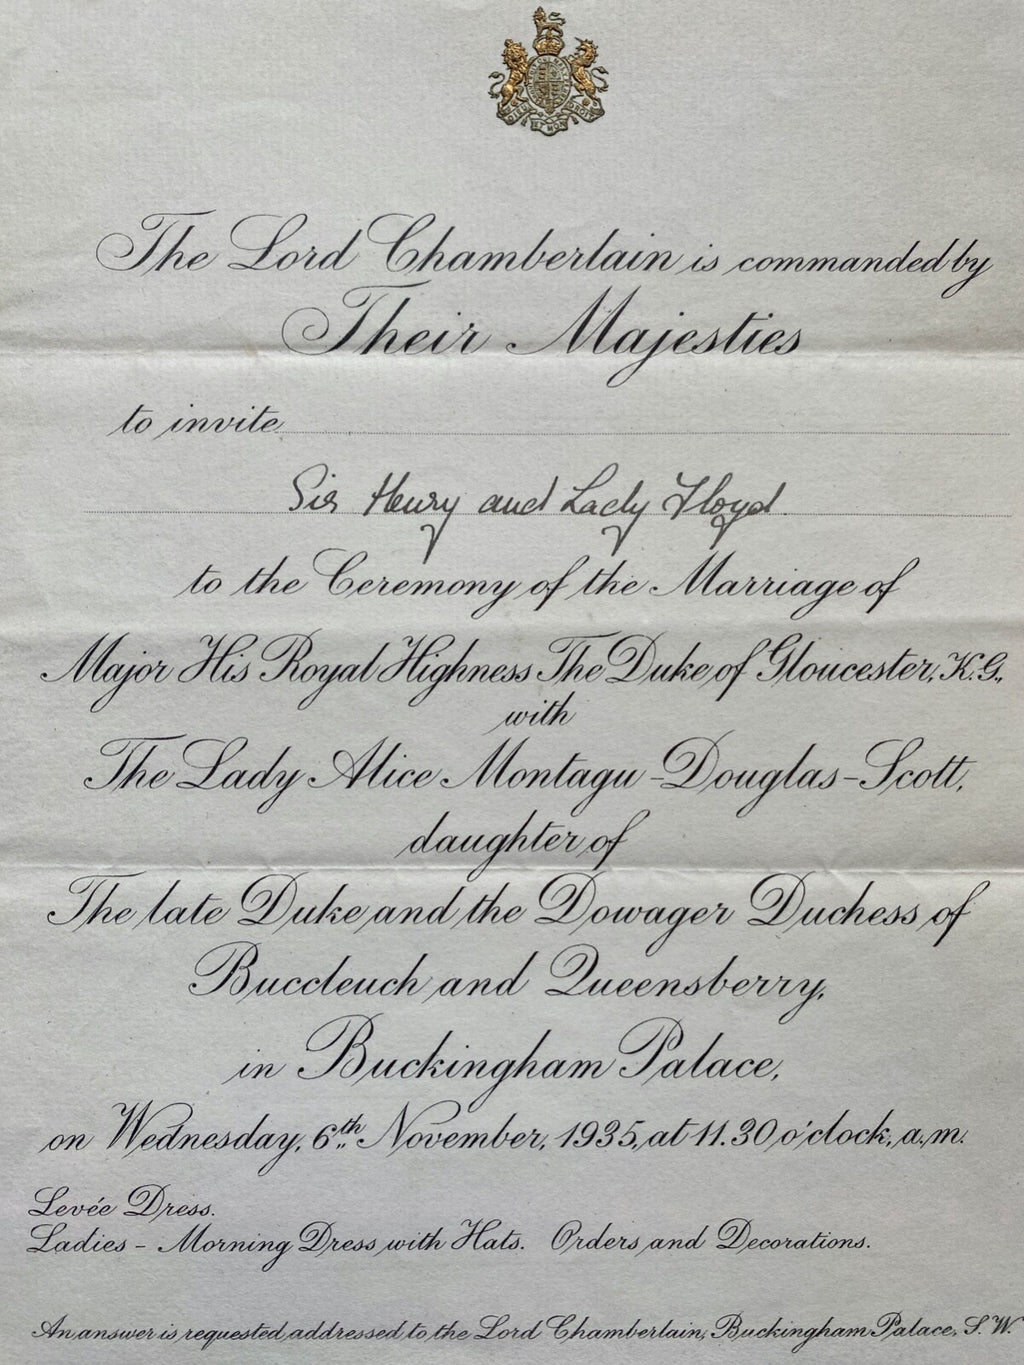 The Lord Chamberlain is commanded by
Their Majesties
to invite
Sir Henry and Lady Floyd.
to the Ceremony of the Marriage of
Major His Royal Highness The Duke of Gloucester, K.G.,
with
The Lady Alice Montagu-Douglas-Scott,
daughter of
The late Duke and the Dowager Duchess of
Buccleuch and Queensberry,
in Buckingham Palace,
on Wednesday, 6th November, 1935, at 11.30 o'clock, a.m.
Levée Dress.
Ladies - Morning Dress with Hats. Orders and Decorations.
An answer is requested addressed to the Lord Chamberlain, Buckingham Palace, S.W.